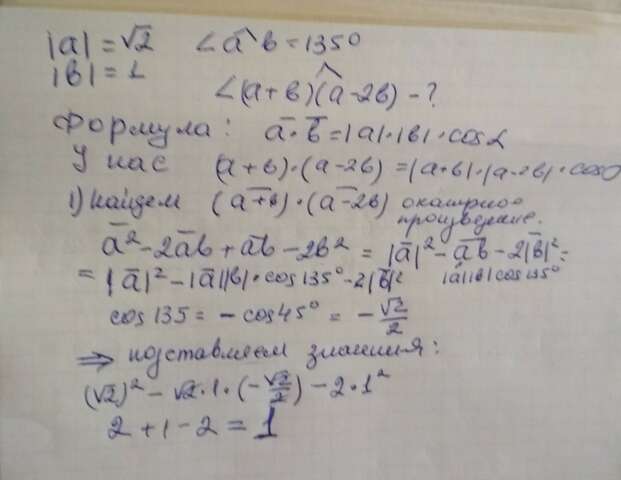 |a| = √2 ∠ a^b = 135°
|b| = 1
∠(a+b)^(a-2b) - ?
Формула: a̅·b̅ = |a|·|b|·cosα
У нас (a+b)·(a-2b) = |a+b|·|a-2b|·cos
1) Найдем (a̅+b̅)·(a̅-2b) скалярное
произведение.
a̅² - 2a̅b + a̅b - 2b² = |a̅|² - a̅b̅ - 2|b̅|² =
= |a̅|² - |a̅||b|·cos135° - 2|b̅|² |a||b|cos135°
cos135 = -cos45° = -√2/2
⇒ подставляем значения:
(√2)² - √2·1·(-√2/2) - 2·1²
2 + 1 - 2 = 1